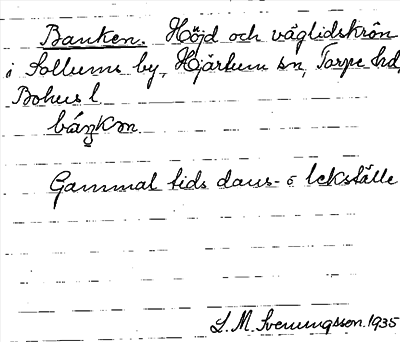 Banken. Höjd och väglidskrön
i Sollums by, Hjärtum sn, Torpe hd,
Bohus l
Gammal tids dans- o lekställe
L. M. Svenungsson. 1935